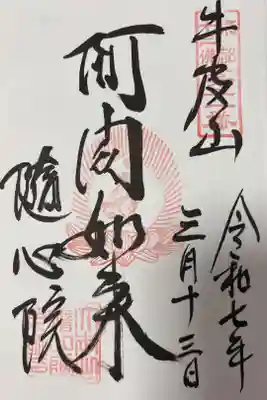 牛皮山
令和七年
三月十三日
阿閦如来
隨心院